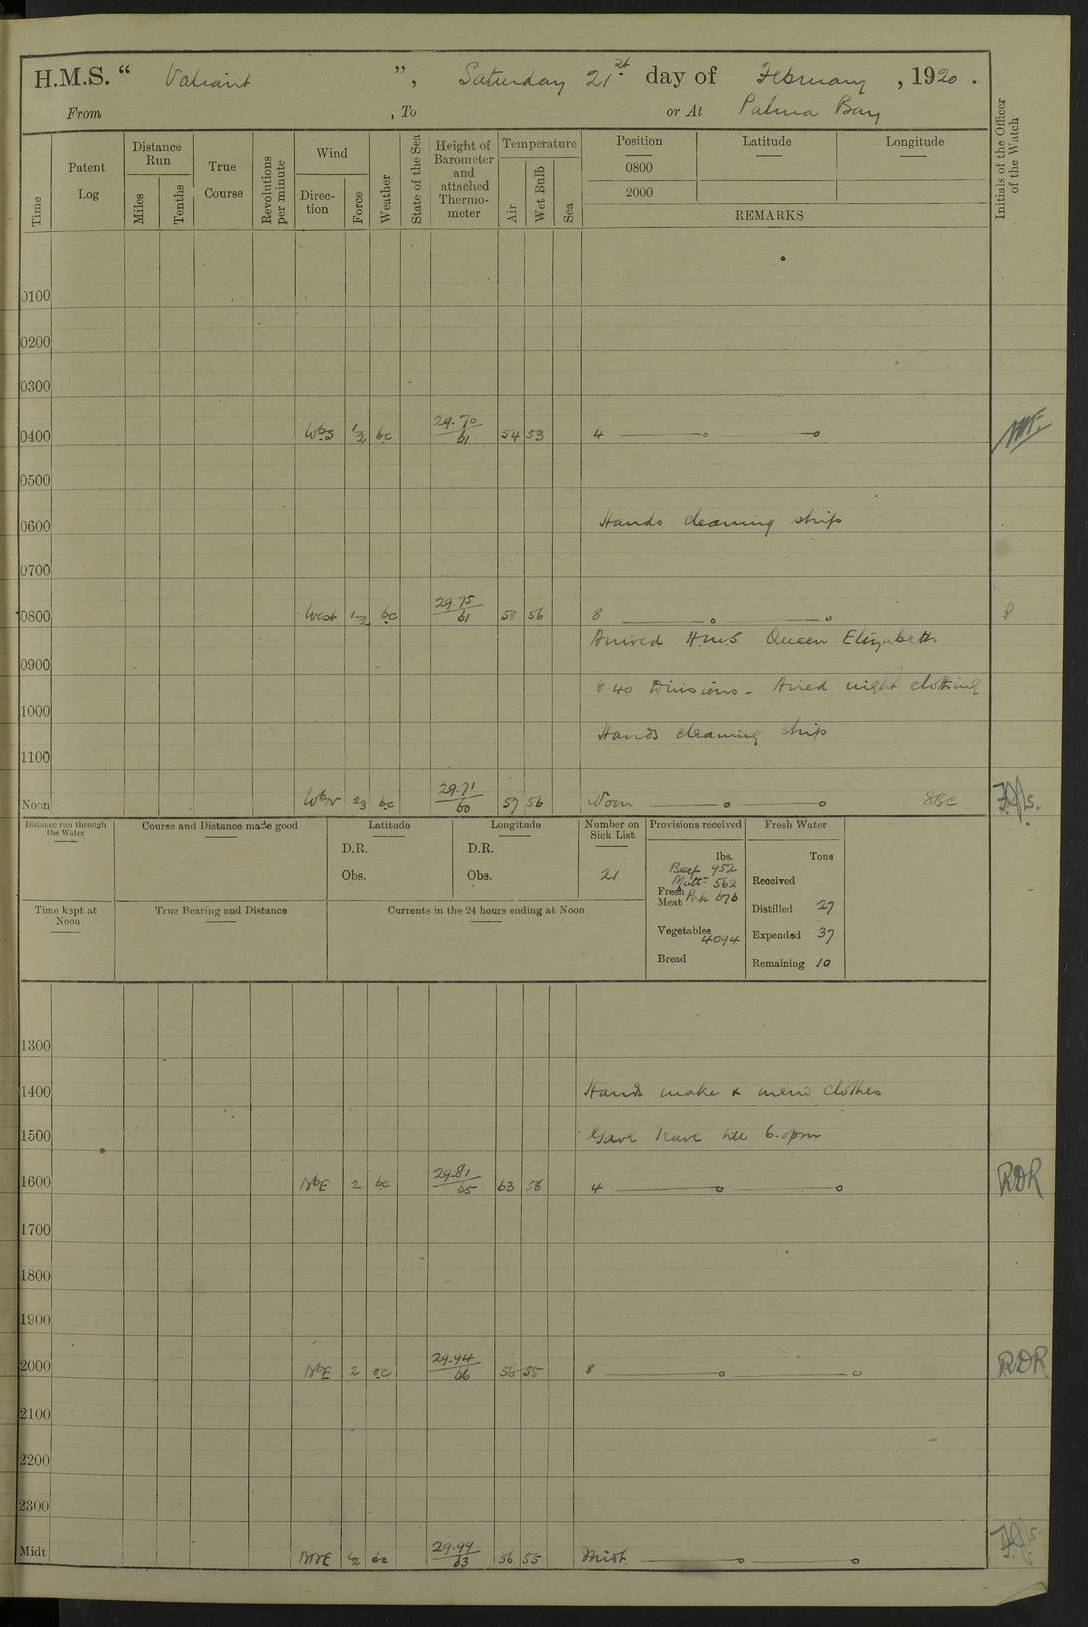 H.M.S. “ Valiant ”, Saturday 21st day of February, 1920.
From , To or At Palma Bay
Time
Patent Log
Distance Run
Miles
Tenths
True Course
Revolutions per minute
Wind
Direction
Force
Weather
State of the Sea
Height of Barometer and attached Thermometer
Temperature
Air
Wet Bulb
Sea
Position
0800
2000
Latitude
Longitude
REMARKS
Initials of the Officer of the Watch
0100
0200
0300
0400 WbS 1/2 bc 29.70/61 54 53 4
0500
0600 Hands cleaning ship
0700
0800 West 1-2 bc 29.75/61 58 56 8
Arrived HMS Queen Elizabeth
0900
8.40 Divisions - Aired night clothing
1000
Hands cleaning ship
1100
Noon WbN 23 bc 29.71/60 57 56 Noon
Distance run through the Water
Course and Distance made good
Latitude
D.R.
Obs.
Longitude
D.R.
Obs.
Number on Sick List
21
Provisions received
lbs.
Beef 952
Mutt- 562
Fresh Meat Pork 676
Vegetables 4094
Bread
Fresh Water
Tons
Received
Distilled 27
Expended 37
Remaining 10
Time kept at Noon
True Bearing and Distance
Currents in the 24 hours ending at Noon
1300
1400 Hands make & mend clothes
1500 Gave leave till 6.0pm
1600 NbE 2 bc 29.81/65 63 58 4 RDR
1700
1800
1900
2000 NbE 2 bc 29.94/66 56 55 8 RDR
2100
2200
2300
Midt NNE 29.99/63 56 55 Midt